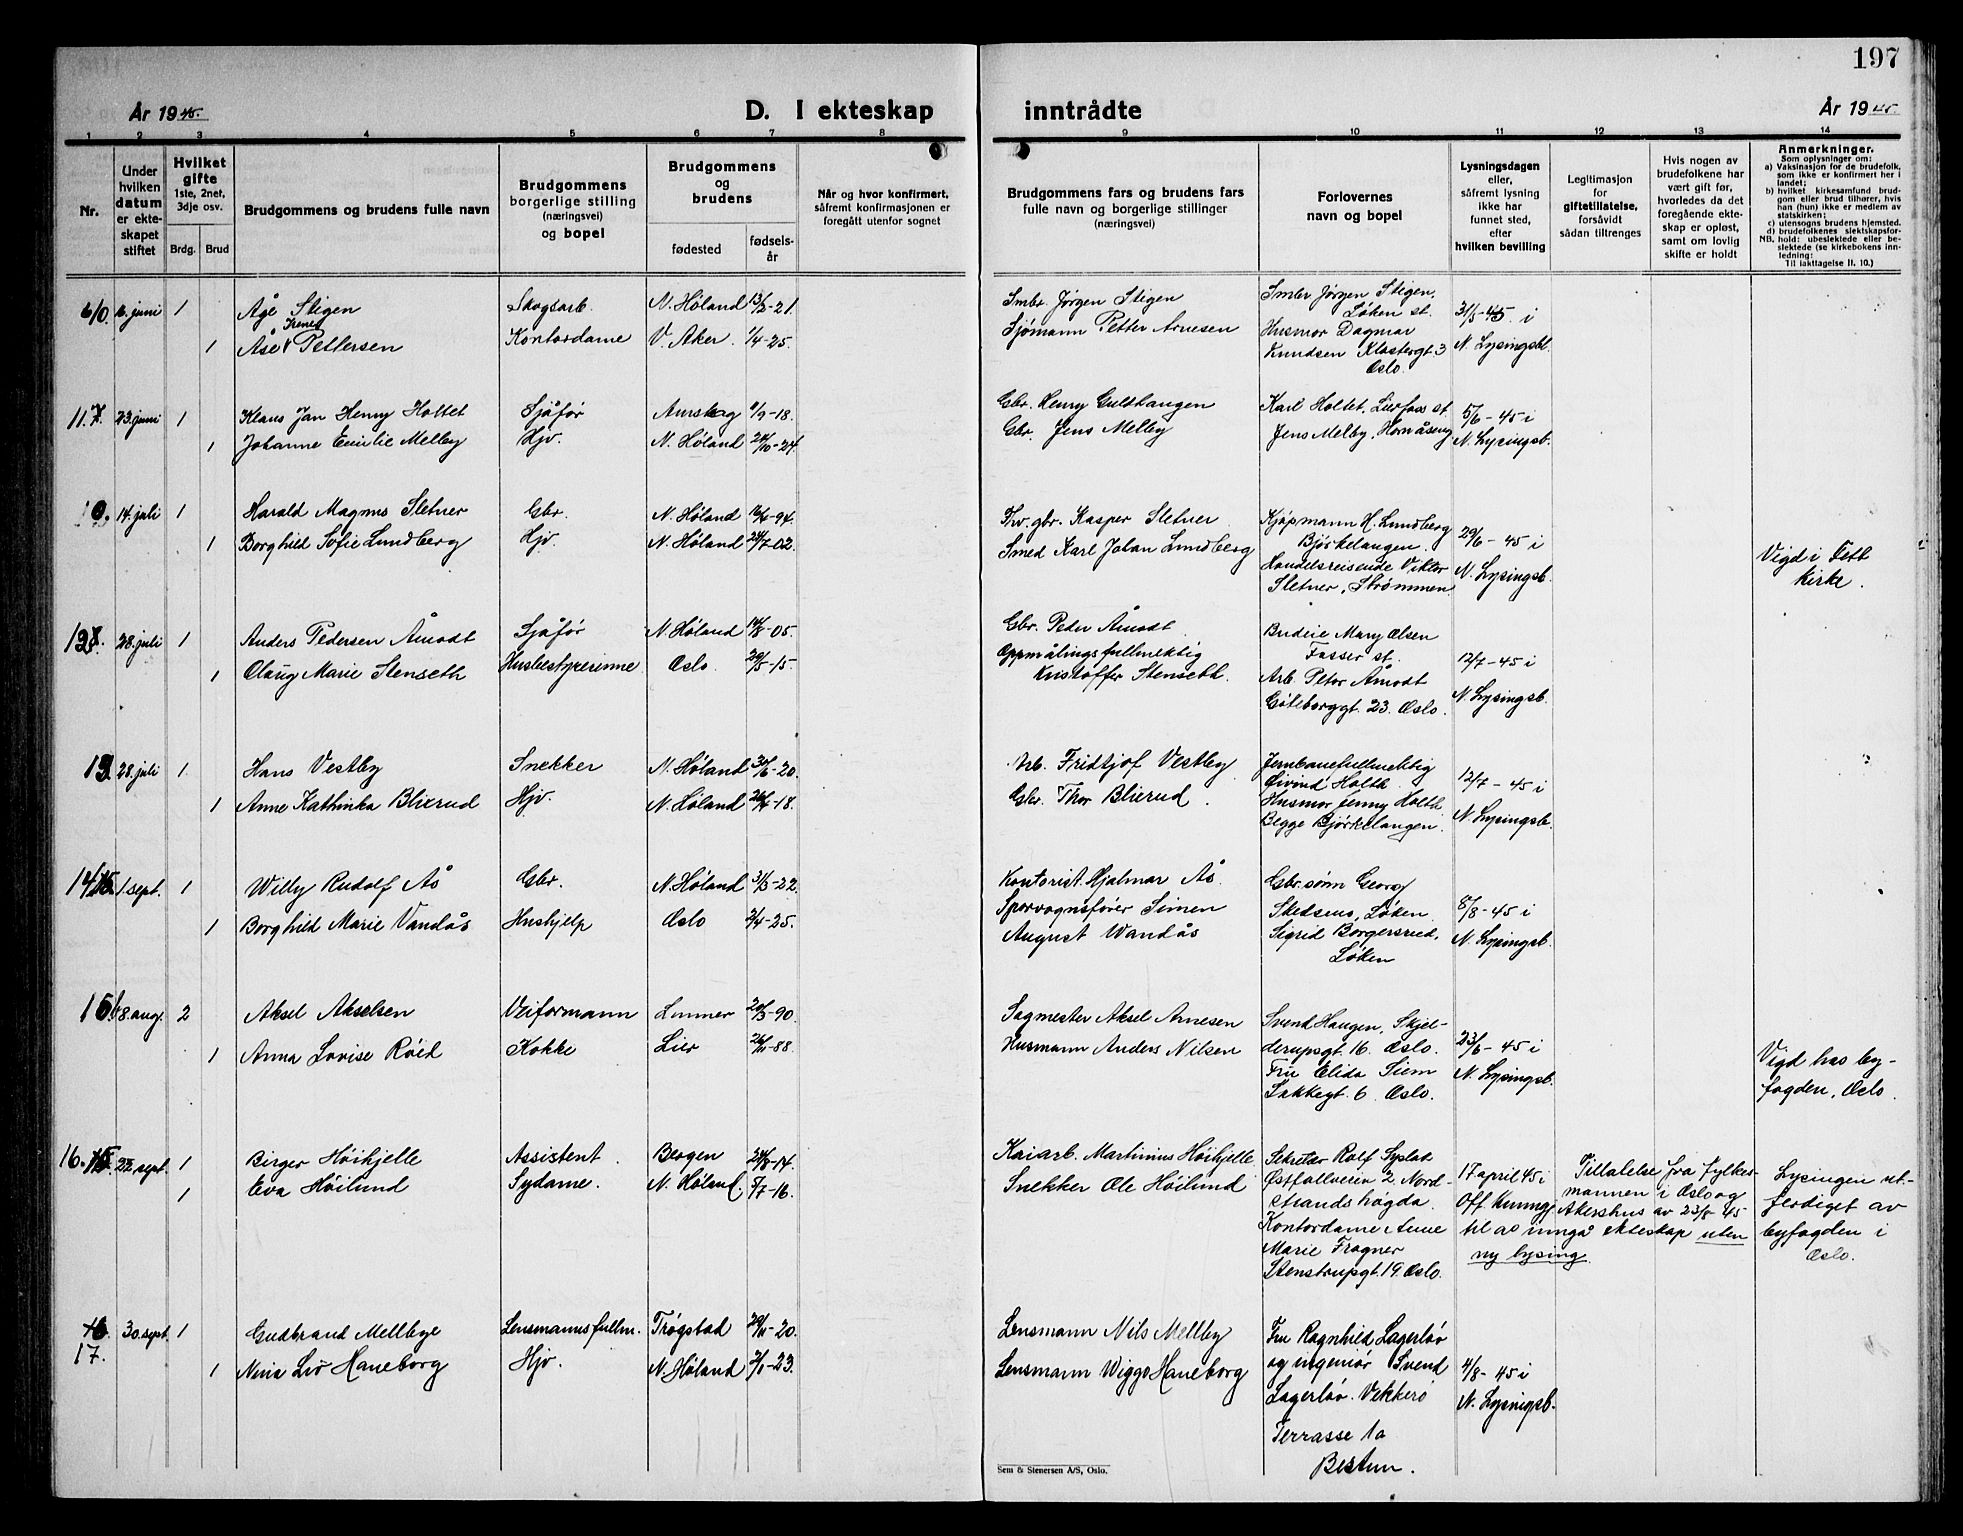 197
År 1945.
D. I ekteskap inntrådte
År 1945.
1 2 3 4 5 6 7 8 9 10 11 12 13 14
Nr.
Under hvilken datum er ekteskapet stiftet
Hvilket gifte 1ste, 2net, 3dje osv.
Brdg. Brud
Brudgommens og brudens fulle navn
Brudgommens borgerlige stilling (næringsvei) og bopel
Brudgommens og brudens
fødested
fødselsår
Når og hvor konfirmert, såfremt konfirmasjonen er foregått utenfor sognet
Brudgommens fars og brudens fars fulle navn og borgerlige stillinger (næringsvei)
Forlovernes navn og bopel
Lysningsdagen eller, såfremt lysning ikke har funnet sted, efter hvilken bevilling
Legitimasjon for giftetillatelse, forsåvidt sådan tiltrenges
Hvis nogen av brudefolkene har vært gift før, hvorledes da det foregående ekteskap er opløst, samt om lovlig skifte er holdt
Anmerkninger.
Som oplysninger om:
a) Vaksinasjon for de brudefolk, som ikke er konfirmert her i landet;
b) hvilket kirkesamfund brudgom eller brud tilhører, hvis han (hun) ikke er medlem av statskirken;
c) utensogns brudens hjemsted.
d) brudefolkenes slektskapsforhold: ubeslektede eller beslektede (se kirkebokens innledning:
NB.
Til iakttagelse II. 10.)
1 Åge Stigen Skogsarb. N. Høland 13/2-21.
Irene
1 Åse Pettersen Kontordame V. Aker. 1/4-25.
Smbr. Jørgen Stigen
Sjømann Petter Arnesen
Smbr Jørgen Stigen,
Løken st.
Husmor Dagmar
Knudsen Klostergt. 3
Oslo.
31/5-45 i
N. Lysingsbl.
11. 23. juni 1 Klaus Jan Henry Holtet Sjåfør Aurskog 1/9-18.
1 Johanne Emilie Melby Hjv. N. Høland 24/10-24.
Gbr. Henry Gulthaugen
Gbr. Jens Melby
Karl Holtet, Lierfoss st.
Jens Melby, Hornåseng
5/6-45 i
N. Lysingsb.
14. juli 1 Harald Magnus Sletner Gbr. N. Høland 16/6-94.
1 Borghild Sofie Lundberg Hjv. N. Høland 24/7-02.
Fhv. gbr. Kasper Sletner
Smed Karl Johan Lundberg
Kjøpmann H. Lundberg
Bjørkelangen.
Handelsreisende Viktor
Sletner, Strømmen
29/6-45 i
N. Lysingsb.
Vigd i Fett
kirke.
28. juli 1 Anders Pedersen Åmodt Sjåfør N. Høland 14/8-05.
1 Olaug Marie Stenseth Husbestyrerinne Oslo. 29/5-15.
Gbr. Peder Åmodt
Oppmålingsfullmektig
Kristoffer Stenseth.
Budeie Mary Olsen
Fosser st.
Arb. Peter Åmodt
Göteborggt. 23. Oslo.
12/7-45 i
N. Lysingsb.
13. 28. juli 1. Hans Vestby Snekker N. Høland 30/6-20.
1 Anne Kathinka Blixrud Hjv. N. Høland 26/4-18.
Arb. Fridtjof Vestby
Gbr. Thor Blixrud.
Jernbanefullmektig
Øivind Holth.
Husmor Jenny Holth
Begge Bjørkelangen.
12/7-45 i
N. Lysingsb.
14 1. sept. 1 Willy Rudolf Ås Gbr. N. Høland 31/3-22.
1 Borghild Marie Vandås Hushjelp Oslo 2/4-25.
Kontorist. Hjalmar Ås.
Sporvognsfører Simen
August Wandås
Gbr.sønn Georg
Skedsmo, Løken.
Sigrid Borgersrud,
Løken
8/8-45 i
N. Lysingsb.
15 8. aug. 2 Aksel Akselsen Veiformann Lunner 20/3-90.
1 Anna Lovise Röed Kokke Lier 26/11-88.
Sagmester Aksel Arnesen
Husmann Anders Nilsen
Svend Haugen, Skjel-
derupsgt. 16. Oslo.
Fru Elida Siem
Lakkegt. 6 Oslo.
23/6-45 i
N. Lysingsb.
Vigd hos by-
fogden, Oslo.
16. 22. sept. 1 Birger Höikjelle Assistent. Bergen 24/8-14.
1 Eva Höilund Sydame. N. Høland. 5/7-16.
Kaiarb. Martinius Höikjelle
Snekker Ole Höilund
Sekretær Rolf Syslak
Østfallveien 2, Nord-
strandshøgda.
Kontordame Anne
Marie Fragner
Stenstrupsgt. 19. Oslo.
17 april 45 i
Off. Kunng.
Tillatelse fra fylkes-
mannen i Oslo og
Akershus av 23/8 45
til at inngå ekteskap uten
ny lysing.
Lysingen ut-
ferdiget av
byfogden i
Oslo.
17. 30. sept. 1 Gudbrand Mellbye Lensmannsfullm. Trøgstad 29/11-20.
1 Nina Liv Haneborg Hjv. N. Høland 2/1-23.
Lensmann Nils Mellby
Lensmann Wiggo Haneborg
Fru Ragnhild Lagerløv
og ingeniør Svend
Lagerløv. Vekkerö
Terrasse 1a
Bestun.
4/8-45 i
N. Lysingsb.
Sem & Stenersen A/S, Oslo.